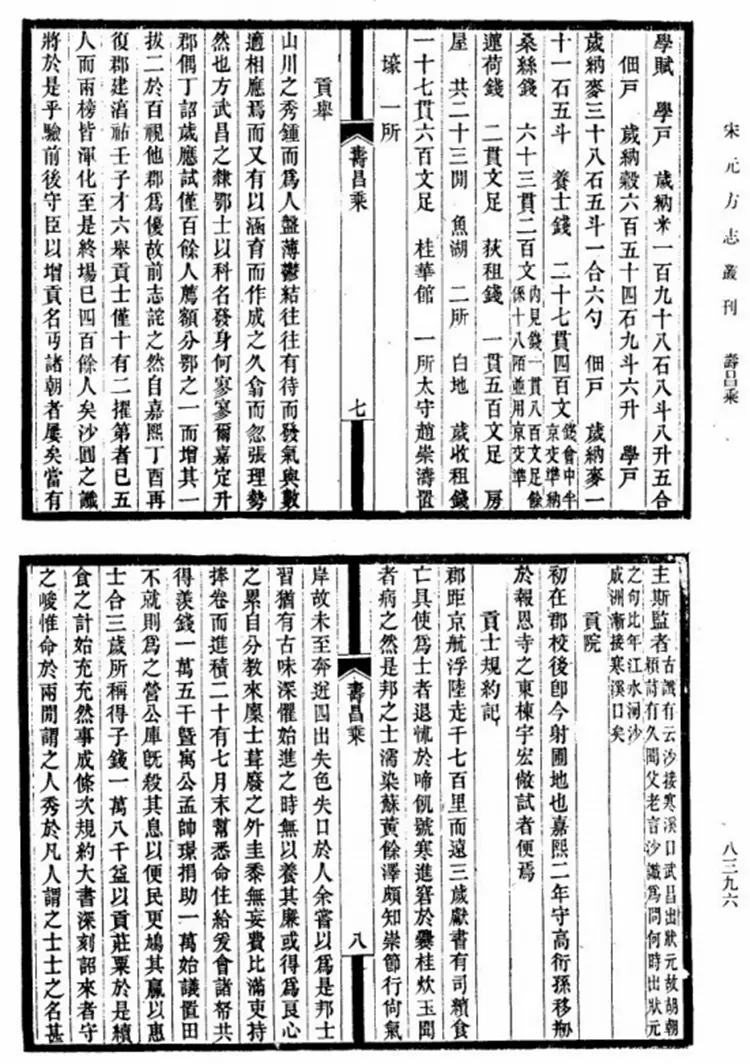 宋元方志叢刊 壽昌乘
八三九六
學賦 學戸 歲納米一百九十八石八斗八升五合
佃戸 歲納穀六百五十四石九斗六升 學戸
歲納麥三十八石五斗一合六勺 佃戸 歲納麥一
十一石五斗 養士錢 二十七貫四百文錢會中半京交準納
桑絲錢 六十三貫二百文内見錢一貫八百文足餘係十八陌並用京交準
蓮荷錢 二貫文足 荻租錢 一貫五百文足 房
屋 共二十三間 魚湖 二所 白地 歲收租錢
一十七貫六百文足 桂華館 一所太守趙崇濤置
壕 一所
壽昌乘 七
貢舉
山川之秀鍾而爲人盤薄鬱結往往有待而發氣與數
適相應焉而又有以涵育而作成之久翕而忽張理勢
然也方武昌之隸鄂士以科名發身何寥寥爾嘉定升
郡偶丁詔歲應試僅百餘人薦額分鄂之一而增其一
拔二於百視他郡爲優故前志詫之然自嘉熙丁酉再
復郡建濇祜壬子才六舉貢士僅十有二擢第者已五
人而兩榜皆渾化至是終場已四百餘人矣沙圓之讖
將於是乎驗前後守臣以增貢名丐諸朝者屢矣當有
主斯監者古讖有云沙接寒溪口武昌出狀元故胡朝
頴詩有久聞父老言沙讖爲問何時出狀元
之句比年江水洞沙
成洲漸接寒溪口矣
貢院
初在郡校後卽今射圃地也嘉熙二年守高衍孫移剏
於報恩寺之東棟宇宏敞試者便焉
貢士規約記
郡距京航浮陸走千七百里而遠三歲獻書有司糗食
亡具使爲士者退怵於啼飢號寒進窘於爨桂炊玉聞
者病之然是邦之士濡染蘇黃餘澤頗知崇節行尙氣
壽昌乘 八
岸故未至奔迸四出失色失口於人余嘗以爲是邦士
習猶有古味深懼始進之時無以養其廉或得爲良心
之累自分教來廩士葺廢之外圭黍無妄費比滿吏持
捧卷而進積二十有七月末幫悉命住給爰會諸帑共
得羨錢一萬五千暨寓公孟帥璟捐助一萬始議置田
不就則爲之營公庫旣殺其息以便民更鳩其贏以惠
士合三歲所稱得子錢一萬八千益以貢莊粟於是續
食之計始充充然事成條次規約大書深刻詔來者守
之峻惟命於兩閒謂之人秀於凡人謂之士士之名甚